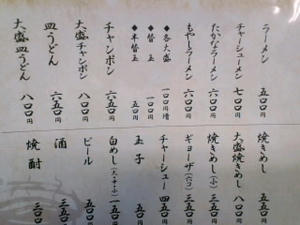 ラーメン 五〇〇円
チャーシューメン 七〇〇円
たかなラーメン 六〇〇円
もやしラーメン 六〇〇円
◆各大盛 一〇〇円増
◆替玉 一〇〇円
◆半替玉 五〇円
チャンポン 六五〇円
大盛チャンポン 八〇〇円
皿うどん 六五〇円
大盛皿うどん 八〇〇円
焼きめし 五〇〇円
大盛焼きめし 八〇〇円
焼きめし(小) 三五〇円
ギョーザ(六コ) 三五〇円
チャーシュー 四五〇円
玉子 五〇円
白めし(大・中・小) 一五〇円
ビール 五〇〇円
酒 三五〇円
焼酎 三〇〇円